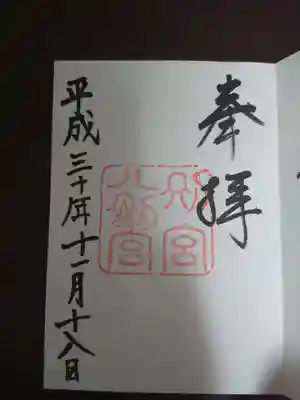 奉拝
別宮
八幡宮
平成三十年十一月十八日